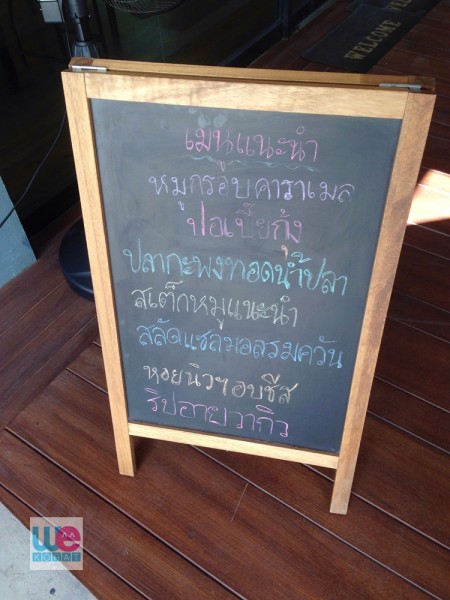 WELCOME
เมนูแนะนำ
หมูกรอบคาราเมล
ปอเปี๊ยกุ้ง
ปลากะพงทอดน้ำปลา
สเต็กหมูแนะนำ
สลัดแซลมอลรมควัน
หอยนิวฯอบชีส
ริปอายวากิว
we
KORAT